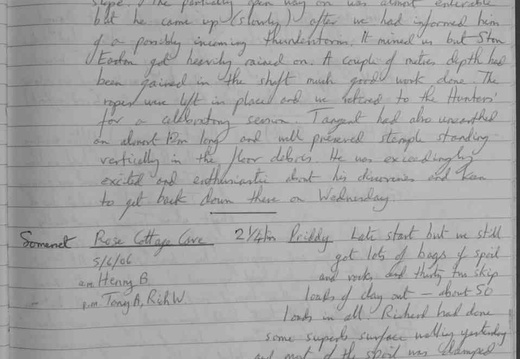 slope. The partially open way on was almost enterable
but he came up (slowly) after we had informed him
of a possibly incoming thunderstorm. It missed us but Ston
Easton got heavily rained on. A couple of metres depth had
been gained in the shaft much good work done. The
ropes were left in place and we retired to the Hunters'
for a celebratory session. Tangent had also unearthed
an almost 12m long and well preserved stemple standing
vertically in the floor debris. He was exceedingly
excited and enthusiastic about his discoveries and keen
to get back down there on Wednesday.
Somerset Rose Cottage Cave 2 1/4 hrs Priddy Late start but we still
5/6/06 got lots of bags of spoil
am Henry B, and rocks and thirty two skip
p.m Tony A, Rich W. loads of clay out – about 50
loads in all. Richard had done
some superb surface walling yesterday
and most of the spoil was dumped